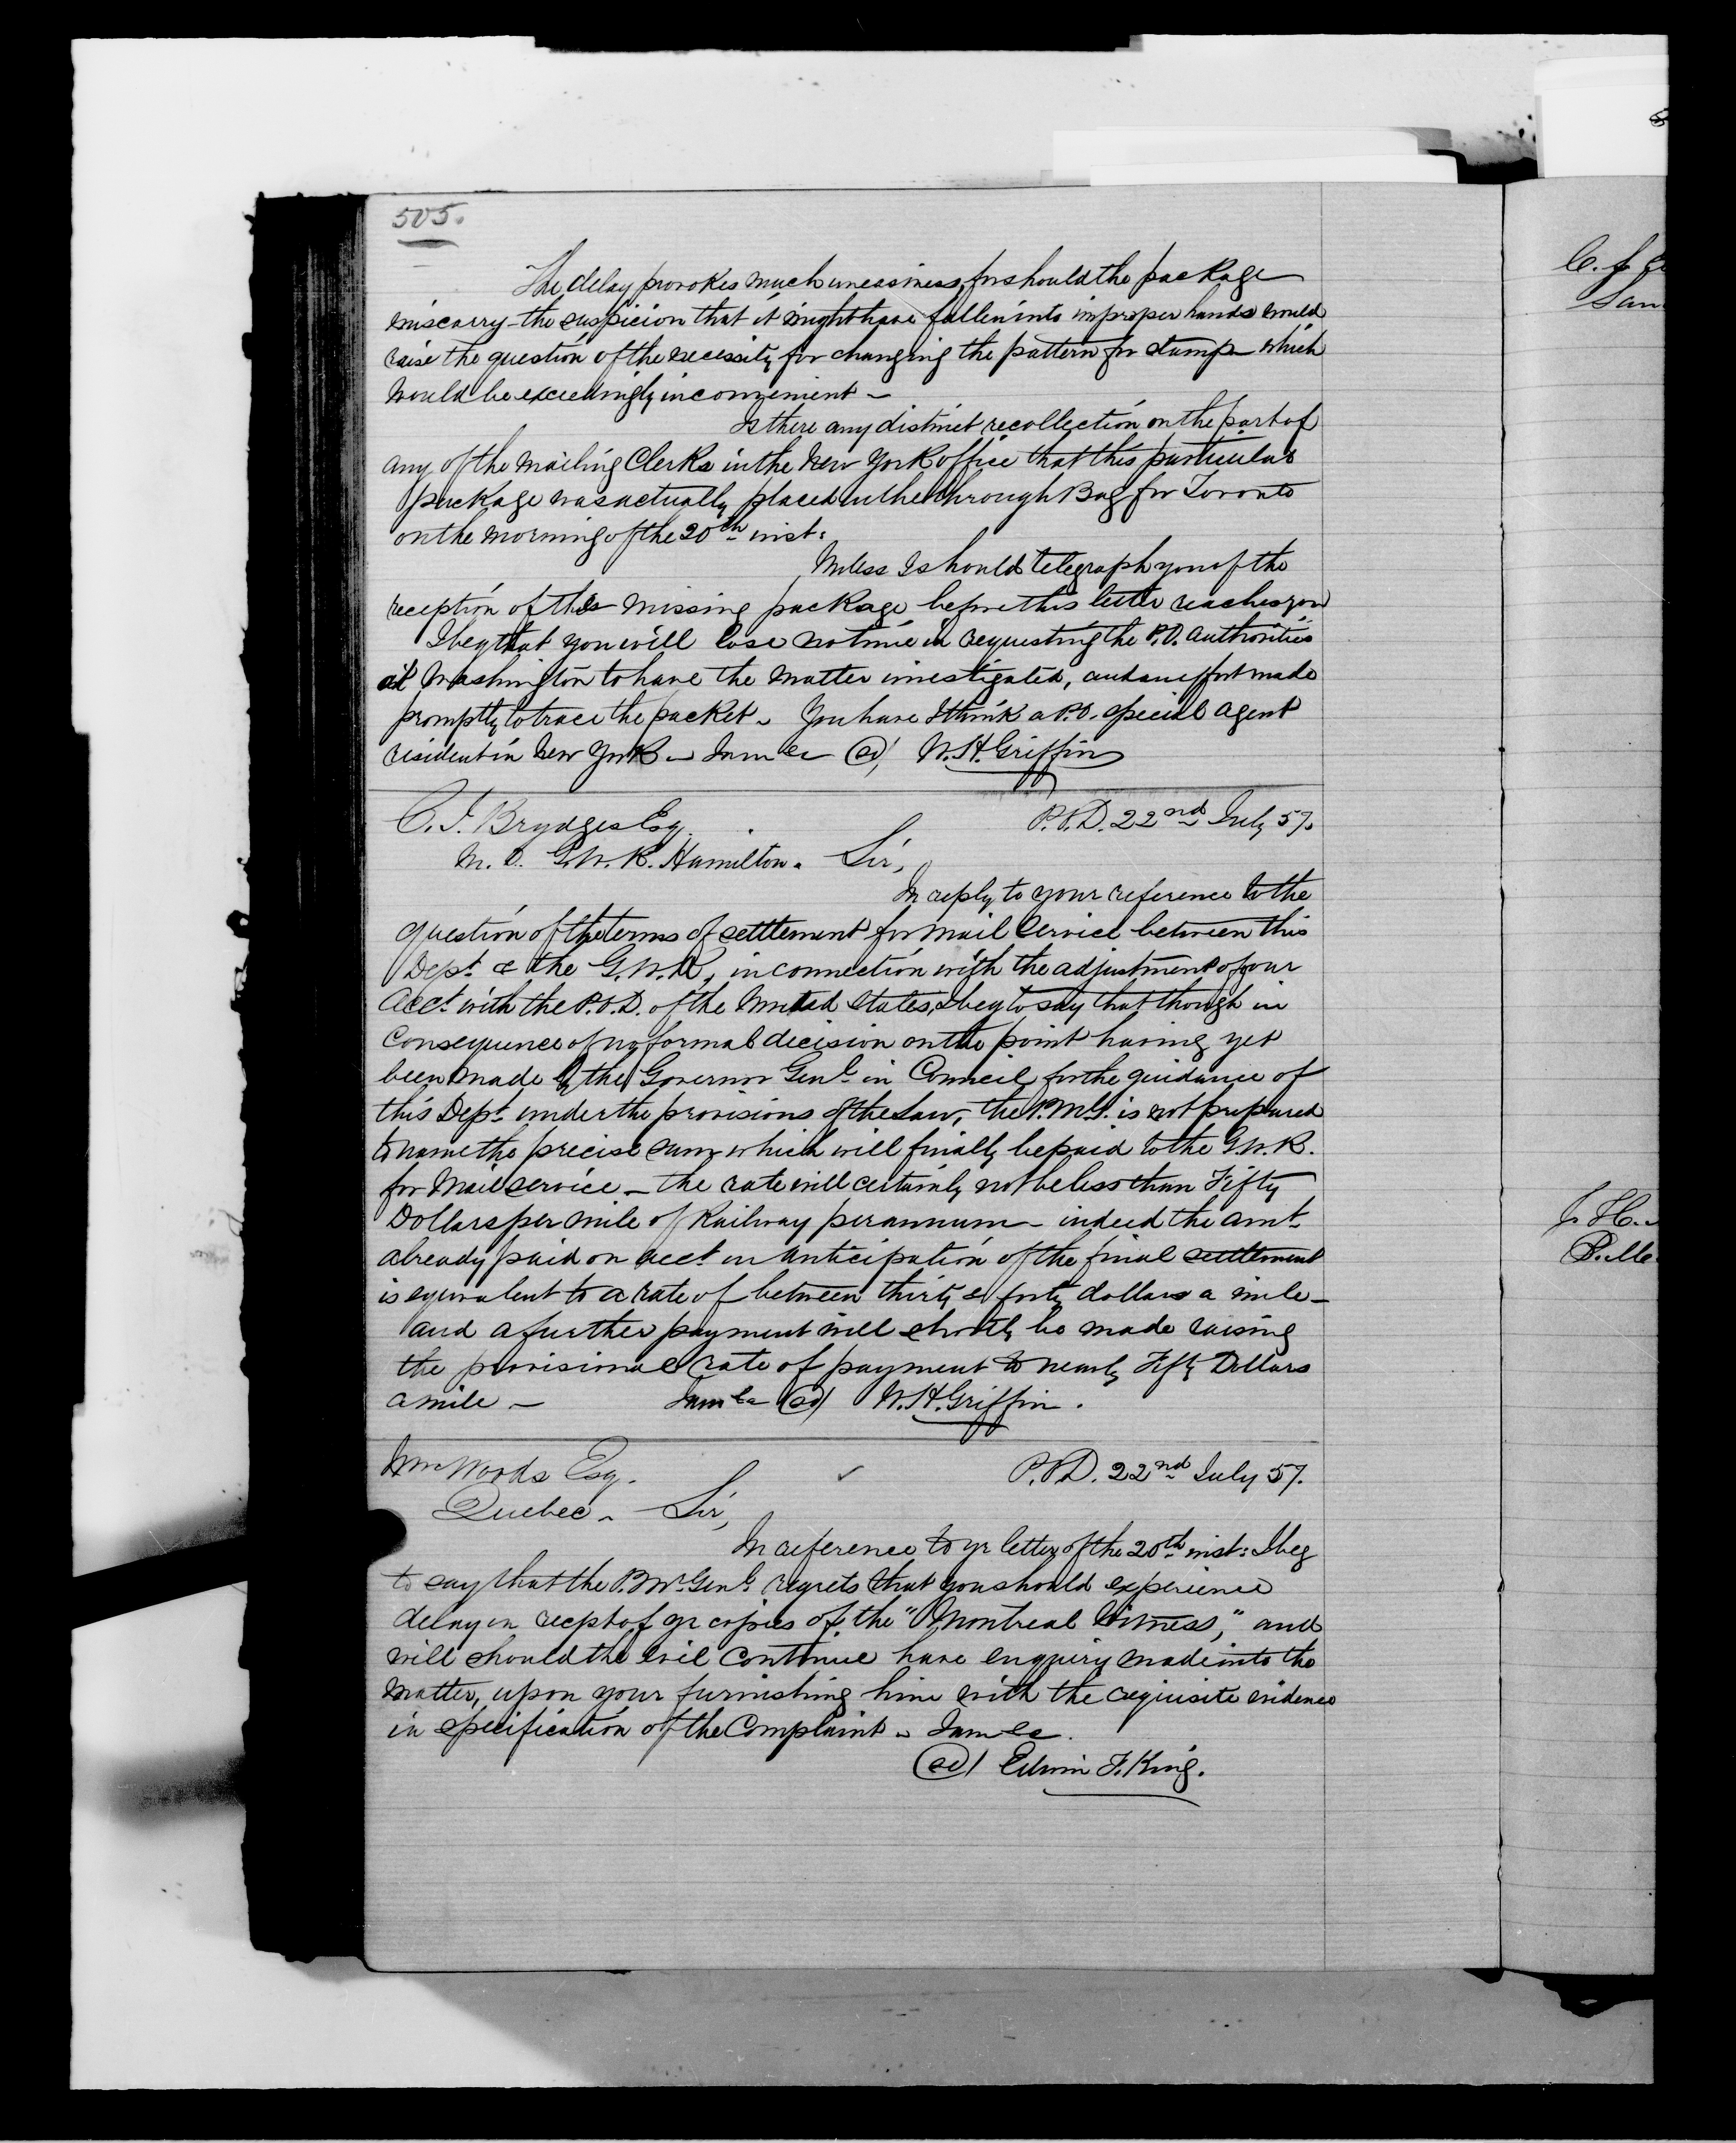 505.
The delay provokes much uneasiness, for should the package
miscarry - the suspicion that it might have fallen into improper hands would
raise the question of the necessity for changing the pattern for stamp - which
would be exceedingly inconvenient -
Is there any distinct recollection on the part of
any of the mailing Clerks in the New York office that this particular
package was actually placed in the through Bag for Toronto
on the morning of the 20th inst:
Unless I should telegraph you of the
reception of the missing package before this letter reaches you
I beg that you will lose no time in requesting the P.O. authorities
at Washington to have the matter investigated, and an effort made
promptly to trace the packet - You have I think a P.O. special agent
resident in New York - I am &c (sd) W.H. Griffin
C.J. Brydges Esq. P.O.D. 22nd July 57.
M. D. G.W.R. Hamilton. Sir,
In reply to your reference to the
question of the terms of settlement for mail service between this
Dept. & the G.W.R, in connection with the adjustment of our
Acct. with the P.O.D. of the United States, I beg to say that though in
consequence of no formal decision on the point having yet
been made by the Governor Genl. in Council for the guidance of
this Dept. under the provisions of the Law, the P.M.G. is not prepared
to name the precise sum which will finally be paid to the G.W.R.
for Mail service - the rate will certainly not be less than Fifty
Dollars per mile of Railway per annum - indeed the amt.
already paid on acct. in anticipation of the final settlement
is equivalent to a rate of between thirty & forty dollars a mile -
and a further payment will shortly be made raising
the provisional rate of payment to nearly Fifty Dollars
a mile - I am &c (sd) W.H. Griffin.
Wm Woods Esq. P.O.D. 22nd July 57.
Quebec - Sir,
In reference to yr letter of the 20th inst: I beg
to say that the P.Mr. Genl. regrets that you should experience
delay in recpt of yr copies of the "Montreal Witness," and
will should the evil continue have enquiry made into the
matter, upon your furnishing him with the requisite evidence
in specification of the Complaint - I am &c.
(sd) Edwin F. King.
C. J.
San
J. H.